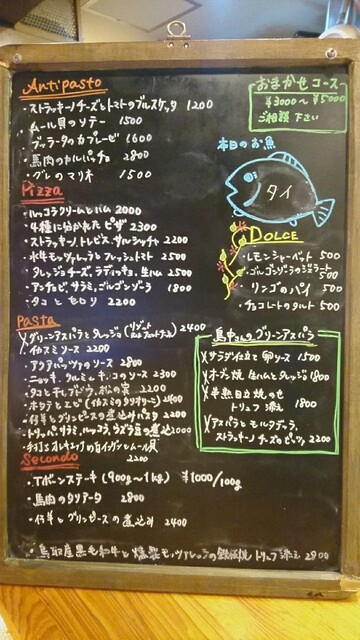 Antipasto
・ストラッキーノチーズとトマトのブルスケッタ 1200
・ムール貝のソテー 1500
・ブッラータのカプレーゼ 1600
・馬肉のカルパッチョ 2800
1500
Pizza
・ルッコラクリームとハム 2000
・4種に分かれたピザ 2300
・ストラッキーノ、トレビス、サルシッチャ 2200
・水牛モッツァレッラとフレッシュトマト 2500
・タレッジョチーズ、ラディッキョ、生ハム 2500
・アンチョビ、サラミ、ゴルゴンゾーラ 1800
・タコとセロリ 2200
Pasta
グリーンアスパラとタレッジョ(リゾット 2400
イカスミソース 2200
・アクアパッツァのソース 2800
・ニョッキ、クルミときのこのソース 2300
・タコと干しブドウ、松の実 2200
・ホタテとエビ(イカスミのタリオリーニ) 2400
・仔羊とグリンピースの煮込みパスタ 2200
・トリッパ、サラミ、ルッコラ、うずら豆の煮込 2000
・手打ちオレキエッテの白インゲンとムール貝
2200
Secondo
・Tボーンステーキ (900g〜1kg) ¥1000/100g
・馬肉のタリアータ 2800
・仔羊とグリンピースの煮込み 2400
・鳥取産黒毛和牛と燻製モッツァレッラの鉄板焼 トリュフ添え 2800
おまかせコース
¥3000〜¥5000
ご相談下さい
本日のお魚
タイ
DOLCE
・レモンシャーベット 500
・ゴルゴンゾーラのジェラート 500
・リンゴのパイ 500
・チョコレートのタルト 500
馬中さんのグリーンアスパラ
サラダ仕立て 卵ソース 1500
オーブン焼 生ハムとタレッジョ 1800
半熟目玉焼のせ
トリュフ添え 1800
アスパラとモルタデッラ、
ストラッキーノチーズのピッツァ 2200